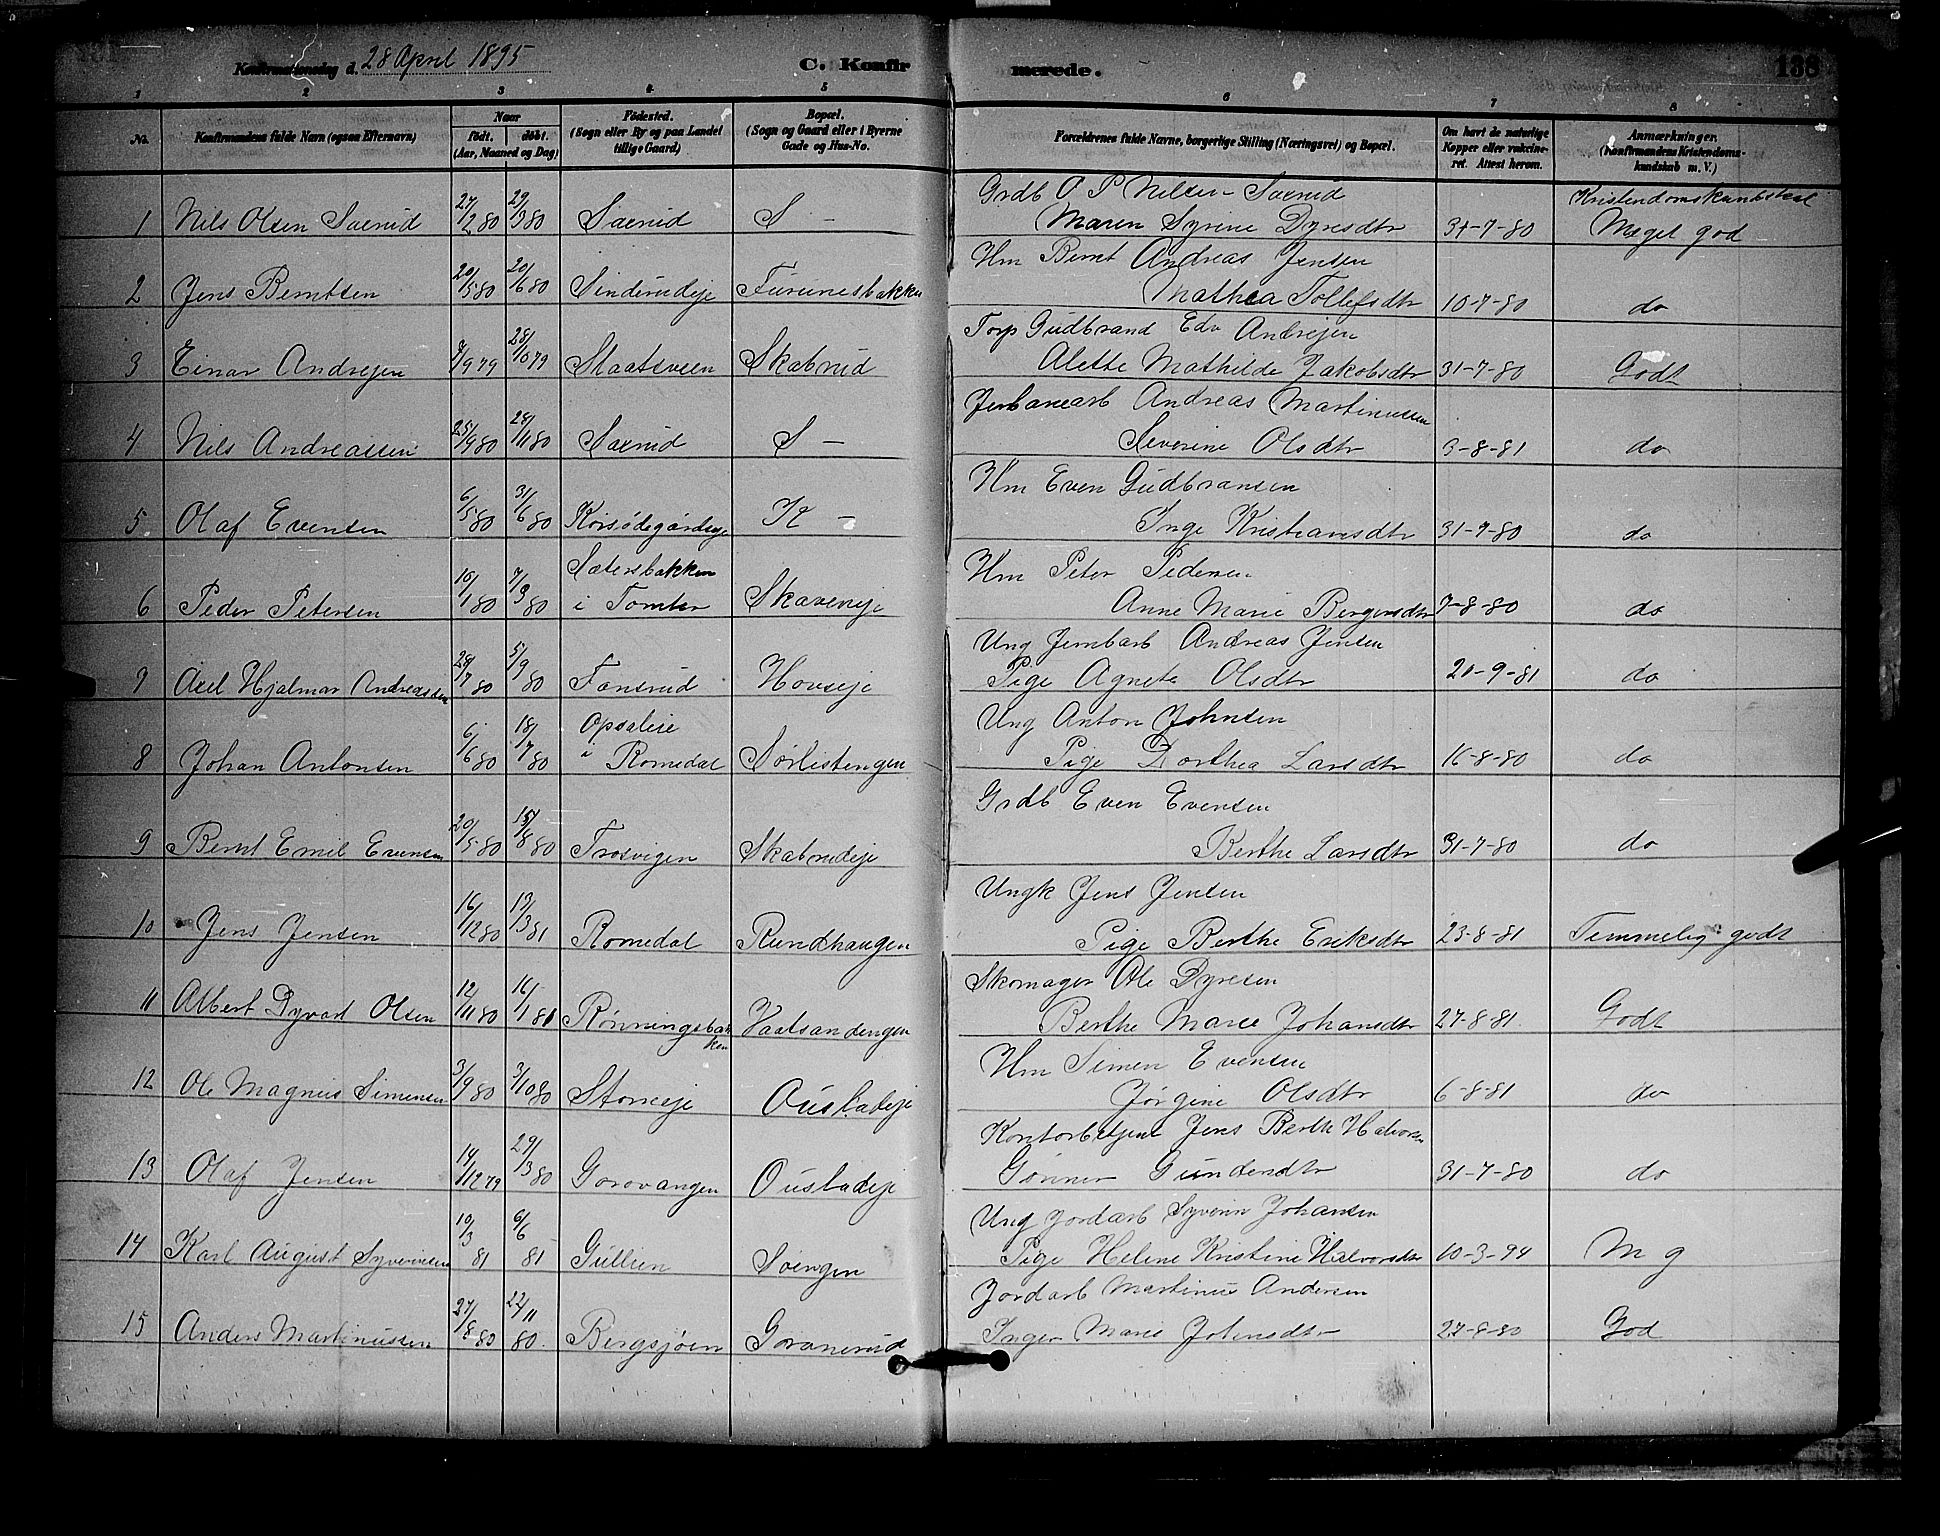 Konfirmationsdag d. 28 April 1895
C. Konfirmerede. 138
1 2 3 4 5 6 7 8
No. Konfirmandens fulde Navn (ogsaa Efternavn) Naar født. døbt. (Aar, Maaned og Dag) Fødested. (Sogn eller By og paa Landet tillige Gaard) Bopæl. (Sogn og Gaard eller i Byerne Gade og Hus-No. Forældrenes fulde Navne, borgerlige Stilling (Næringsvei) og Bopæl. Om havt de naturlige Kopper eller vakcineret. Attest herom. Anmærkninger. (Konfirmandens Kristendomskundskab m. V.)
Grdb O P Nilsen Saxrud Kristendomskundskab
1 Nils Olsen Saxrud 27/2 80 29/3 80 Saxrud S - Maren Syrine Dyresdtr 31-7-80 Meget god
Hm Bernt Andreas Jensen
2 Jens Berntsen 20/5 80 20/6 80 Sinderudeje Furunesbakken Mathea Tollefsdtr 10-7-80 do
Torp Gudbrand Edv Andrejen
3 Einar Andrejen 7/9 79 28/10 79 Staatsveen Skabrud Alette Mathilde Jakobsdtr 31-7-80 Godt
Jerbanearb Andreas Martinussen
4 Nils Andreassen 25/9 80 28/11 80 Saxrud S - Severine Olsdtr 9-8-81 do
Hm Even Gudbransen
5 Olaf Evensen 6/5 80 31/6 80 Korsødegårdseje K - Inge Kristiansdtr 31-7-80 do
Sætersbakken Hm Peter Pedersen
6 Peder Petersen 10/1 80 7/3 80 i Tomter Skaveneje Anne Marie Bergersdtr 7-8-80 do
Ung Jernbarb Andreas Jensen
7 Axel Hjalmar Andreassen 28/7 80 5/9 80 Fonsrud Hovseje Pige Agnete Olsdtr 20-9-81 do
Opsaleie Ung Anton Johnsen
8 Johan Antonsen 6/6 80 18/7 80 i Romedal Sørlistengen Pige Dorthea Larsdtr 16-8-80 do
Grdb Even Evensen
9 Bernt Emil Evensen 20/5 80 15/8 80 Frosvigen Skabrudeje Berthe Larsdtr 31-7-80 do
Ungk Jens Jensen
10 Jens Jensen 16/12 80 13/3 81 Romedal Rundhaugen Pige Berthe Eriksdtr 23-8-81 Temmelig godt
Skomager Ole Dyresen
11 Albert Dyvart Olsen 12/11 80 16/1 81 Rønningsbakken Vaatsandengen Berthe Marie Johansdtr 27-8-81 Godt
Hm Simen Evensen
12 Ole Magnus Simensen 3/9 80 3/10 80 Storreje Ousbadeje Jørgine Olsdtr 6-8-81 do
Kontorbetjent Jens Berth Halvorsen
13 Olaf Jensen 14/12 79 29/3 80 Gorovangen Ousbadeje Gønner Gundersdtr 31-7-80 do
Ung Jordarb Syverin Johansen
14 Karl August Syverinsen 10/3 81 6/6 81 Gullien Soengen Pige Helene Kristine Halvorsdtr 10-3-94 M g
Jordarb Martinus Andersen
15 Anders Martinussen 27/8 80 22/11 80 Bergsjøen Goranerud Inger Marie Johnsdtr 27-8-80 God